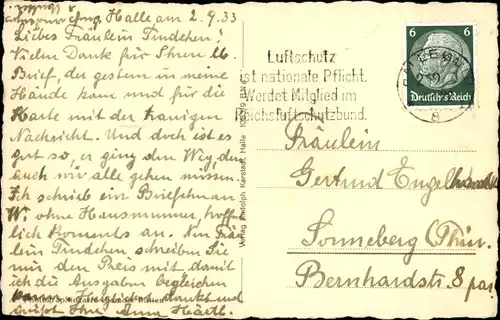 Halle am 2.9.33
Liebes Fräulein Tindchen!
Vielen Dank für Ihren lb.
Brief, der gestern in meine
Hände kam und für die
Karte mit der traurigen
Nachricht. Und doch ist es
gut so, er ging den Weg, den
auch wir alle gehen müssen.
Ich schrieb ein Briefchen an
W. ohne Hausnummer, hoffent-
lich kommts an. Nun Frä-
lein Tindchen, schreiben Sie
mir den Preis mit damit
ich die Ausgaben begleichen
kann. Herzlich dankt und
grüßt Ihr Anna Härtl.
Luftschutz
ist nationale Pflicht.
Werdet Mitglied im
Reichsluftschutzbund.
6 6
Deutsches Reich
Verlag Rudolph Karstadt, Halle
Fräulein
Gertrud Engelhardt
Sonneberg (Thür.
Bernhardstr. 8 par